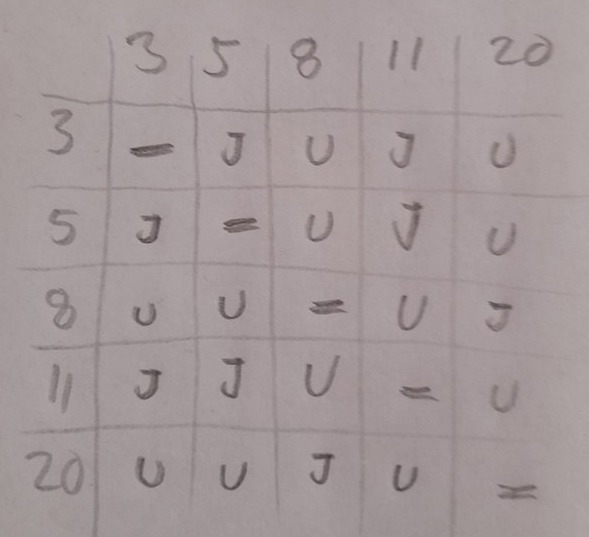 3 5 8 11 20
3 – J U J U
5 J = U J U
8 U U = U J
11 J J U = U
20 U U J U =